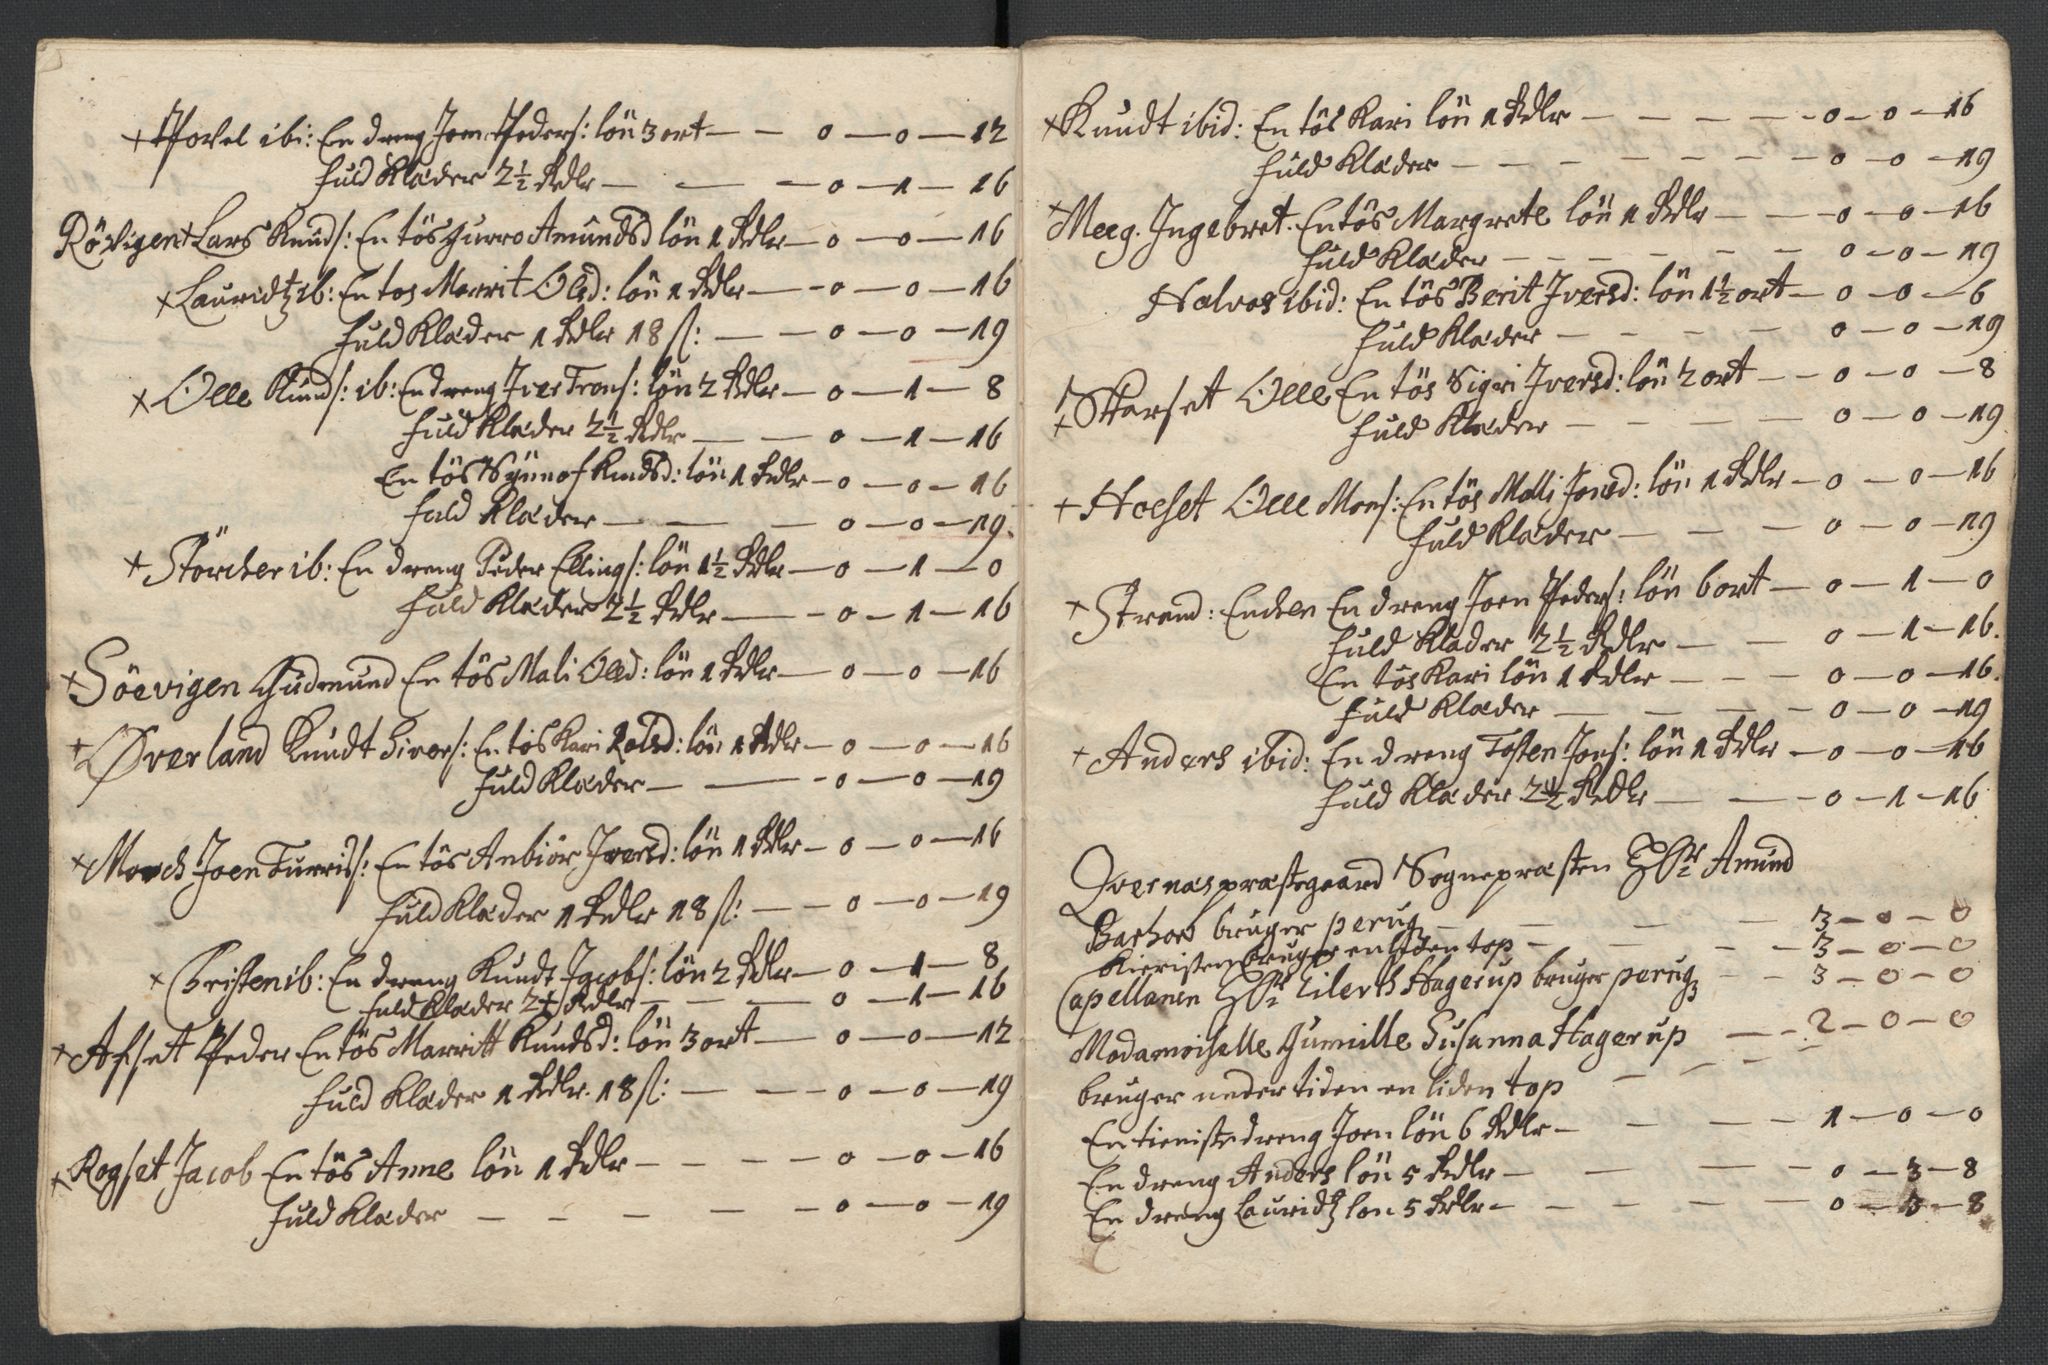 + Povel ibi: En dreng Joen Peders: lön 3 ort — — 0 — 0 — 12
fuld Klæder 2½ Rdlr — — — 0 — 1 — 16
Rövigen + Lars Knuds: En tös Gurro Amundsd lön 1 Rdlr — 0 — 0 — 16
+ Lauridtz ib: En tos Marrit Olsd: lön 1 Rdlr — 0 — 0 — 16
fuld Klæder 1 Rdlr 18 s: — — 0 — 0 — 19
+ Olle Knuds: ib: En dreng Iver Trons: lön 2 Rdlr — 0 — 1 — 8
fuld Klæder 2½ Rdlr — — 0 — 1 — 16
En tös Sÿnnof Knudsd: lön 1 Rdlr — 0 — 0 — 16
fuld Klæder — — — 0 — 0 — 19.
+ Störcher ib: En dreng Peder Ellings: lön 1½ Rdlr — 0 — 1 — 0
fuld Klæder 2½ Rdlr — — 0 — 1 — 16
+ Söevigen Gudmund En tös Mali Olsd: lön 1 Rdlr — 0 — 0 — 16
+ Øverland Knudt Sivers: En tös Kari Rolsd: lön 1 Rdlr — 0 — 0 — 16
fuld Klæder — — — 0 — 0 — 19
+ Morch Joen Turris: En tös Anbiör Iversd: lön 1 Rdlr — 0 — 0 — 16
fuld Klæder 1 Rdlr 18 s: — — 0 — 0 — 19
+ Christen ib: En dreng Knudt Jacobs: lön 2 Rdlr — 0 — 1 — 8
fuld Klæder 2½ Rdlr — — — 0 — 1 — 16
+ Afset Peder En tös Marritt Knudsd: lön 3 ort — 0 — 0 — 12
fuld Klæder 1 Rdlr. 18 s: — — 0 — 0 — 19
+ Rogset Jacob En tös Anne lön 1 Rdlr — — — — 0 — 0 — 16
fuld Klæder — — — — — 0 — 0 — 19
+ Knudt ibid: En tös Kari lön 1 Rdlr — — — — 0 — 0 — 16
fuld Klæder — — — — — — — 0 — 0 — 19
+ Meeg. Ingebret. En tös Margrete lön 1 Rdlr — — 0 — 0 — 16
fuld Klæder — — — — — — 0 — 0 — 19
Halvor ibid: En tös Berit Iversd: lön 1½ ort — 0 — 0 — 6
fuld Klæder — — — — 0 — 0 — 19
+ Skarset Olle En tös Sigri Iversd: lön 2 ort — — 0 — 0 — 8
fuld Klæder — — — — 0 — 0 — 19
+ Hoeset Olle Mons: En tös Malli Jonsd: lön 1 Rdlr — 0 — 0 — 16
fuld Klæder — — — 0 — 0 — 19
+ Strand: Enden En dreng Joen Peders: lön 6 ort — 0 — 1 — 0
fuld Klæder 2½ Rdlr — — 0 — 1 — 16.
En tös Kari lön 1 Rdlr — — — 0 — 0 — 16.
fuld Klæder — — — — 0 — 0 — 19
+ Anders ibid: En dreng Tosten Jons: lön 1 Rdlr — 0 — 0 — 16
fuld Klæder 2½ Rdlr — — — 0 — 1 — 16
Qvernæs præstegaard Sognepræsten Hr Amund
Barhow bruger perug — — — — 3 — 0 — 0
Kieristen bruger en liden top — — — — 3 — 0 — 0
Capellanen Hr Eilerth Hagerup bruger perug — — 3 — 0 — 0
Madamoiselle Gumille Susanna Hagerup — — 2 — 0 — 0
bruger under tiden en liden top — — —
En tieniste dreng Joen lön 6 Rdlr — — — — 1 — 0 — 0
En dreng Anders lön 5 Rdlr — — — — 0 — 3 — 8
En dreng Lauridtz lon 5 Rdlr — — — — 0 — 3 — 8